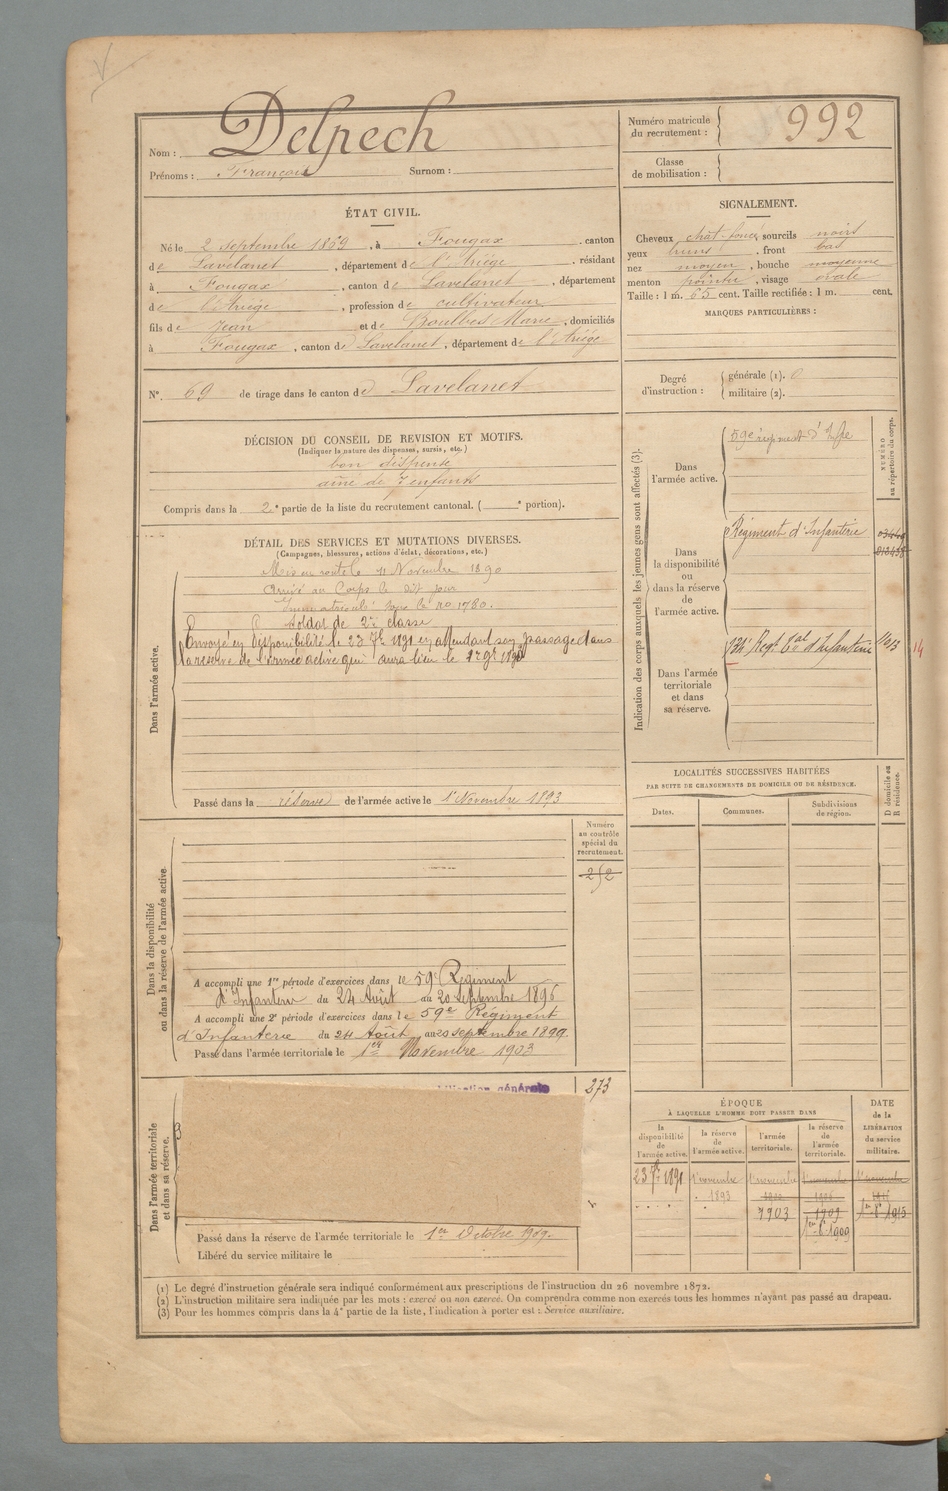 Nom : Delpech
Prénoms : François Surnom :
Numéro matricule du recrutement : 992
Classe de mobilisation :
ÉTAT CIVIL.
Né le 2 septembre 1869, à Fougax, canton
de Lavelanet, département de l'Ariège, résidant
à Fougax, canton de Lavelanet, département
de l'Ariège, profession de cultivateur
fils de Jean et de Boulbes Marie, domiciliés
à Fougax, canton de Lavelanet, département de l'Ariège
SIGNALEMENT.
Cheveux chat-foncé, sourcils noirs
yeux bruns, front bas
nez moyen, bouche moyenne
menton pointu, visage ovale
Taille : 1 m. 65 cent. Taille rectifiée : 1 m. cent.
MARQUES PARTICULIÈRES :
N°. 69 de tirage dans le canton de Lavelanet
Degré d'instruction :
générale (1). 0
militaire (2).
DÉCISION DU CONSEIL DE REVISION ET MOTIFS.
(Indiquer la nature des dispenses, sursis, etc.)
bon dispensé
aîné de 7 enfants
Compris dans la 2e partie de la liste du recrutement cantonal. ( e portion).
DÉTAIL DES SERVICES ET MUTATIONS DIVERSES.
(Campagnes, blessures, actions d'éclat, décorations, etc.)
Dans l'armée active.
Mis en route le 11 Novembre 1890
Arrivé au Corps le dit jour
Immatriculé sous le no 1780.
Soldat de 2e classe
Envoyé en disponibilité le 23 7bre 1891 en attendant son passage dans
la réserve de l'armée active qui aura lieu le 1er 9bre
Passé dans la réserve de l'armée active le 1er Novembre 1893
Indication des corps auxquels les jeunes gens sont affectés (3).
NUMÉRO au répertoire du corps.
Dans l'armée active.
59e régiment d'Infie
Dans la disponibilité ou dans la réserve de l'armée active.
Régiment d'Infanterie
Dans l'armée territoriale et dans sa réserve.
134e Regt tal d'Infanterie
14
Dans la disponibilité ou dans la réserve de l'armée active.
Numéro au contrôle spécial du recrutement.
252
A accompli une 1re période d'exercices dans le 59e Régiment
d'Infanterie du 24 Août au 20 Septembre 1896
A accompli une 2e période d'exercices dans le 59e Régiment
d'Infanterie du 24 Août au 20 septembre 1899
Passé dans l'armée territoriale le 1er Novembre 1903
LOCALITÉS SUCCESSIVES HABITÉES
PAR SUITE DE CHANGEMENTS DE DOMICILE OU DE RÉSIDENCE.
Dates. Communes. Subdivisions de région.
D domicile ou R résidence.
Dans l'armée territoriale et dans sa réserve.
générale
273
Passé dans la réserve de l'armée territoriale le 1er Octobre 1909.
Libéré du service militaire le
ÉPOQUE
À LAQUELLE L'HOMME DOIT PASSER DANS
la disponibilité de l'armée active.
la réserve de l'armée active.
l'armée territoriale.
la réserve de l'armée territoriale.
DATE de la LIBÉRATION du service militaire.
23 7bre 1891
1er novembre 1893
1er novembre 1903
1909
1915
(1) Le degré d'instruction générale sera indiqué conformément aux prescriptions de l'instruction du 26 novembre 1872.
(2) L'instruction militaire sera indiquée par les mots : exercé ou non exercé. On comprendra comme non exercés tous les hommes n'ayant pas passé au drapeau.
(3) Pour les hommes compris dans la 4e partie de la liste, l'indication à porter est : Service auxiliaire.